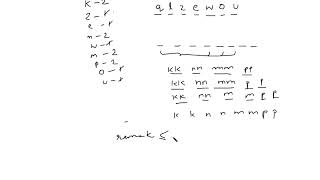 K - 2
2 - r
e - r
n - 2
w - r
m - 2
p - 2
o - r
u - r
q l z e w o u
kk nn mm pp
kk nn mm p p
kk nn m m p p
k k n n m m p p